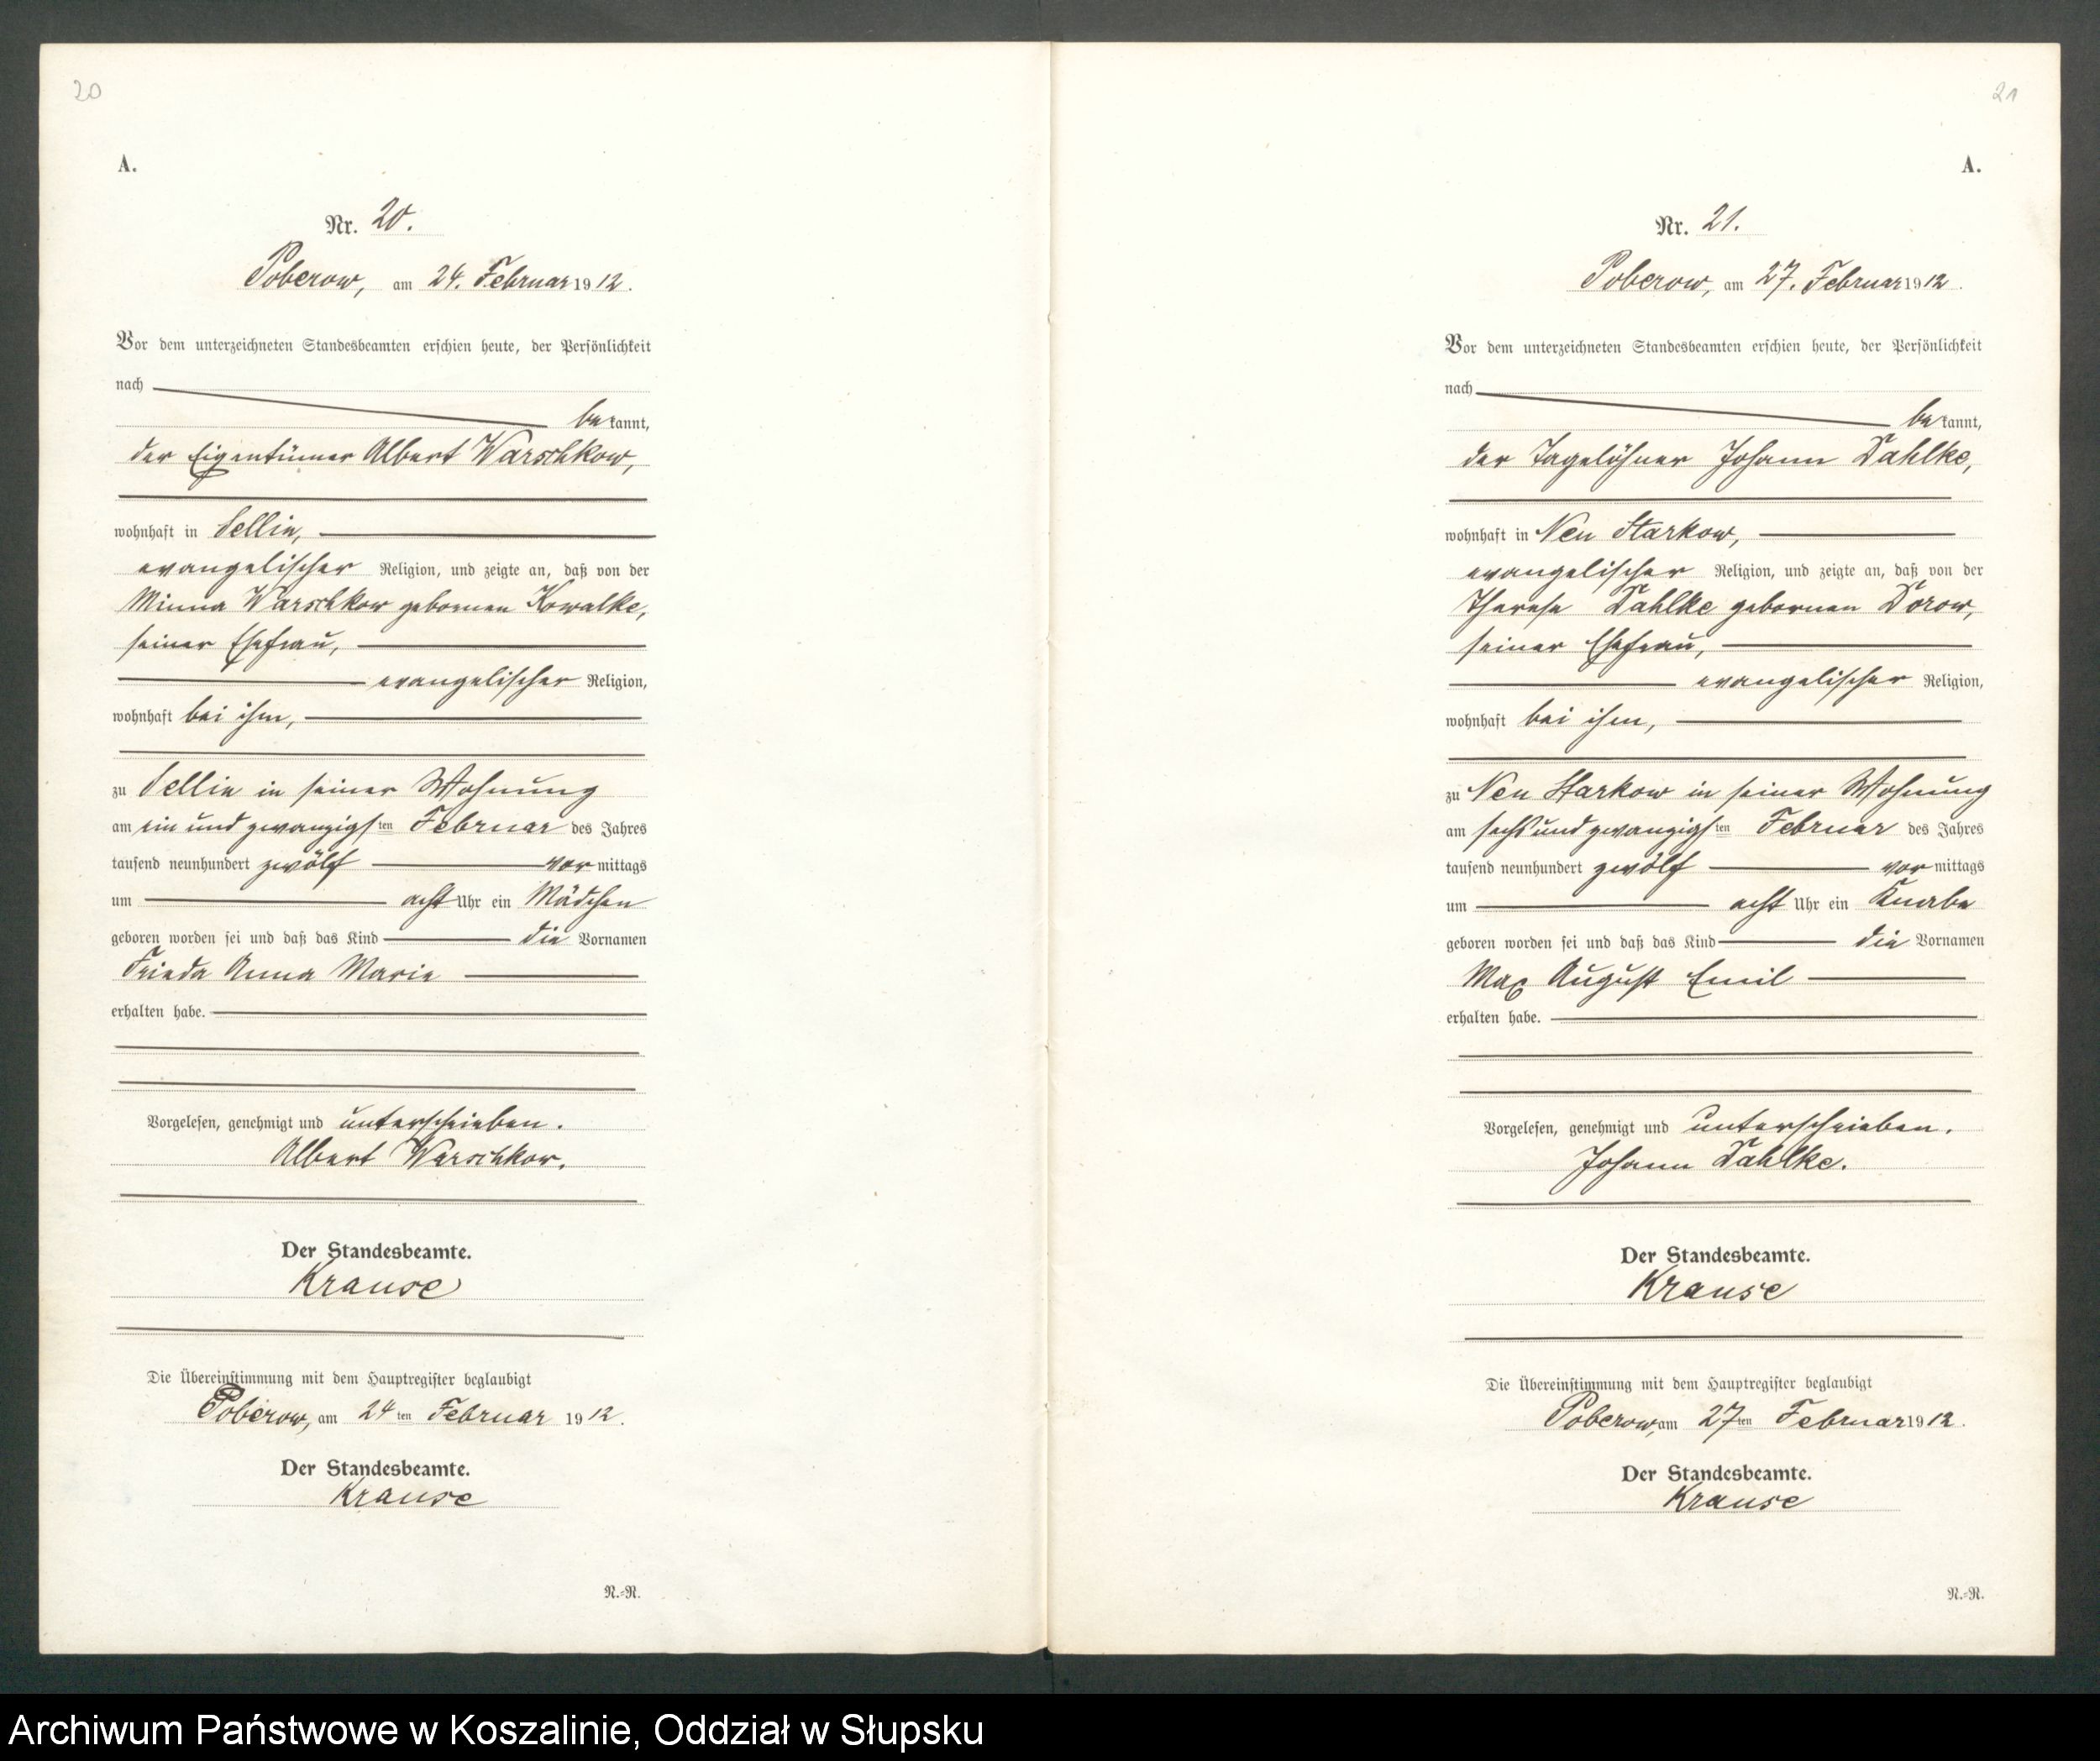 20
A.
Nr. 20.
Poberow, am 24. Februar 1912.
Vor dem unterzeichneten Standesbeamten erschien heute, der Persönlichkeit
nach
bekannt,
der Eigentümer Albert Warschkow,
wohnhaft in Sellin,
evangelischer Religion, und zeigte an, daß von der
Minna Warschkow gebornen Kowalke,
seiner Ehefrau,
evangelischer Religion,
wohnhaft bei ihm,
zu Sellin in seiner Wohnung
am ein und zwanzigsten Februar des Jahres
tausend neunhundert zwölf vormittags
um acht Uhr ein Mädchen
geboren worden sei und daß das Kind die Vornamen
Frieda Anna Marie
erhalten habe.
Vorgelesen, genehmigt und unterschrieben.
Albert Warschkow.
Der Standesbeamte.
Krause
Die Übereinstimmung mit dem Hauptregister beglaubigt
Poberow, am 24ten Februar 1912.
Der Standesbeamte.
Krause
N.=R.
21
A.
Nr. 21.
Poberow, am 27. Februar 1912.
Vor dem unterzeichneten Standesbeamten erschien heute, der Persönlichkeit
nach
bekannt,
der Tagelöhner Johann Dahlke,
wohnhaft in Neu Starkow,
evangelischer Religion, und zeigte an, daß von der
Therese Dahlke gebornen Dorow,
seiner Ehefrau,
evangelischer Religion,
wohnhaft bei ihm,
zu Neu Starkow in seiner Wohnung
am sechs und zwanzigsten Februar des Jahres
tausend neunhundert zwölf vormittags
um acht Uhr ein Knabe
geboren worden sei und daß das Kind die Vornamen
Max August Emil
erhalten habe.
Vorgelesen, genehmigt und unterschrieben.
Johann Dahlke.
Der Standesbeamte.
Krause
Die Übereinstimmung mit dem Hauptregister beglaubigt
Poberow, am 27ten Februar 1912.
Der Standesbeamte.
Krause
N.=R.
Archiwum Państwowe w Koszalinie, Oddział w Słupsku